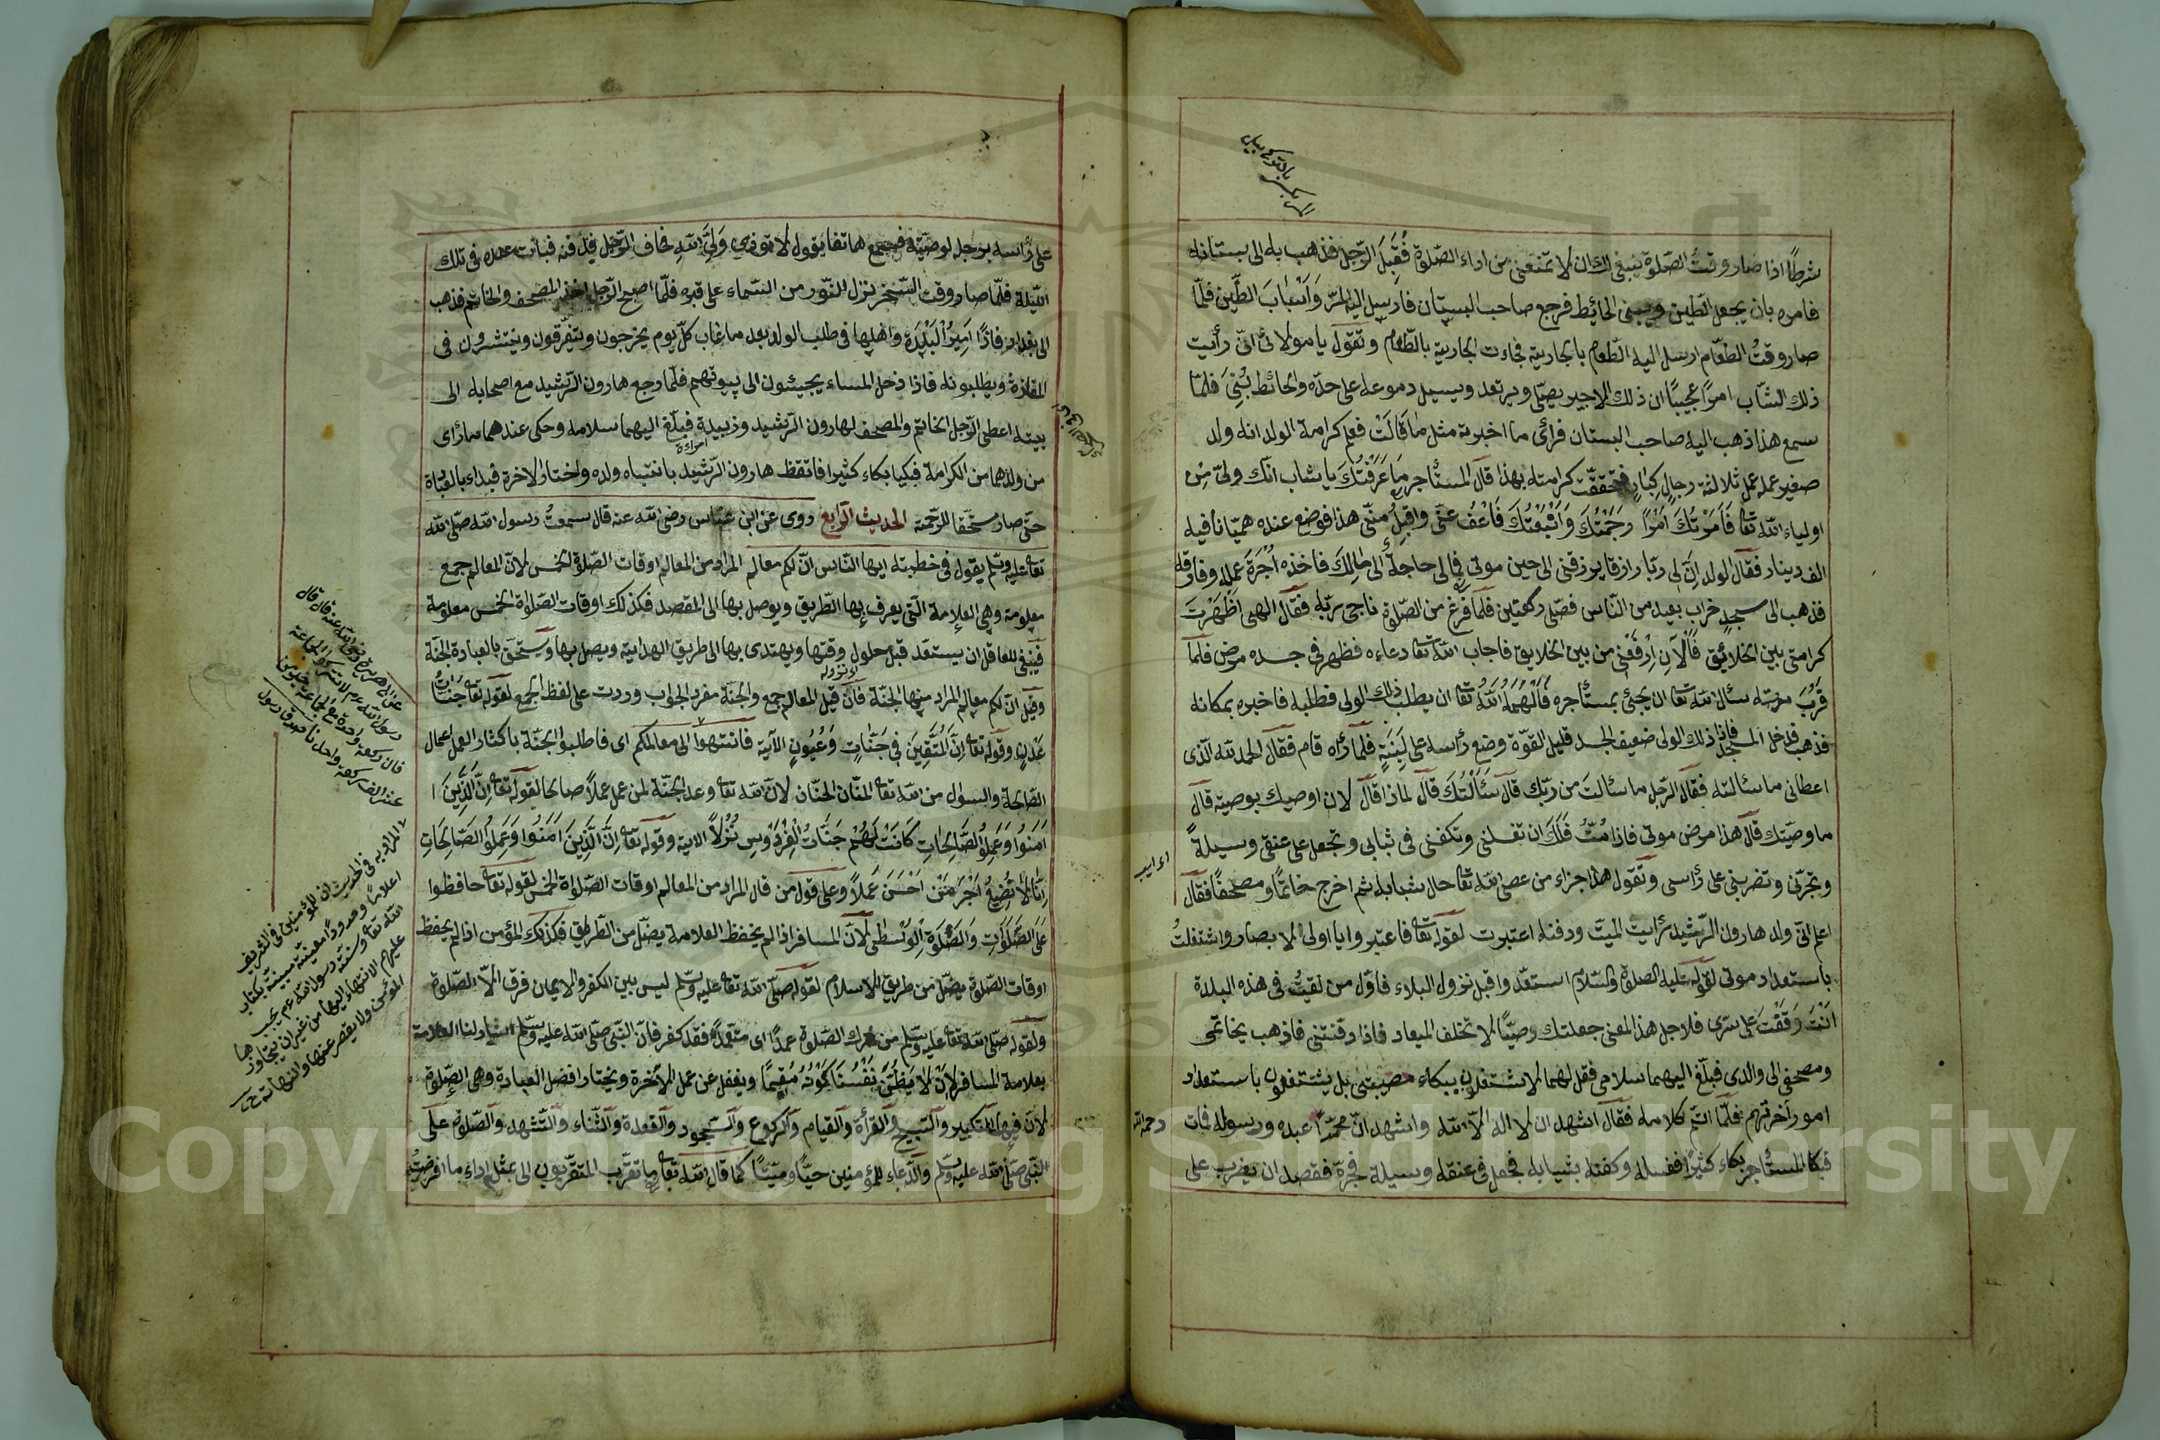 شرطا اذا صار وقت الصلوة ينبغى لك ان لا تمنعنى من اداء الصلوة فقبل الرجل فذهب به الى بستانه
فامره بان يجعل الطين ويبنى الحائط فرجع صاحب البستان فارسل اليه المرّ واسباب الطين فلمّا
صار وقت الطعام ارسل اليه الطعام بالجارية فجاءت الجارية بالطعام وتقول يا مولائى انى رأيت
ذلك الشاب امرا عجيبا ان ذلك الاجير يصلى ويرتعد ويسيل دموعه على خده والحائط بُنِىَ فلمّا
سمع هذا ذهب اليه صاحب البستان فرأى ما اخبرته مثل ما قالت فعلم كرامة الولد انه ولد
صغير عمله عمل ثلاثة رجال كبار فتحققت كرامته بهذا قال المستأجر ما عرفتك يا شاب انك ولىّ من
اولياء الله تعا فامرتك امرا زحمتك واتعبتك فاعف عنى واقبل منى هذا فوضع عنده هميانا فيه
الف دينار فقال الولد ان لى ربّا رازقا يرزقنى الى حين موتى فما لى حاجة الى مالك فاخذه اجرة عمله وفارقه
فذهب الى مسجد خراب بعيد من الناس فصلى ركعتين فلما فرغ من الصلوة ناجى ربه فقال الهى اظهرت
كرامتى بين الخلائق فالآن ارفعنى من بين الخلايق فاجاب الله تعا دعاءه فظهر فى جسده مرض فلما
قرب موته سأل الله تعا ان يجئ بمستأجره فالهمه الله تعا ان يطلب ذلك الولى فطلبه فاخبره بمكانه
فذهب فدخل المسجد فاذا ذلك الولى ضعيف الجسد قليل القوة وضع رأسه على لبنة فلما رآه قام فقال الحمد لله الذى
اعطانى ما سئالته فقال الرجل ما سئالت من ربك قال سئالتك قال لماذا قال لان اوصيك بوصية قال
ما وصيتك قال هذا مرض موتى فاذا مُتُّ فلك ان تغسلنى وتكفننى فى ثيابى وتجعل على عنقى وسيلة
وتجرّنى وتضربنى على رأسى وتقول هذا جزاء من عصى الله تعا حال شبابه ثم اخرج خاتما ومصحفا فقال
اعلم انى ولد هارون الرشيد رأيت الميت ودفنه اعتبرت لقوله تعا فاعتبروا يا اولى الابصار واشتغلت
باستعداد موتى لقوله عليه الصلوة والسلام استعدوا قبل نزول البلاء فاول من لقيت فى هذه البلدة
انت وقفت على سرّى فلاجل هذا المعنى جعلتك وصيّا لا تخلف الميعاد فاذا دفنتنى فاذهب بخاتمى
ومصحفى الى والدى فبلغ اليهما سلامى فقل لهما لا يشتغلون ببكاء مصيبتى بل يشتغلون باستعداد
امور آخرتهم فلمّا اتمّ كلامه فقال اشهد ان لا اله الا الله واشهد انّ محمدا عبده ورسوله فمات رحمه الله
فبكا المستأجر بكاء كثيرا فغسله وكفنه بثيابه فجعل فى عنقه وسيلة فجرّه فقصد ان يضرب على
على رأسه برجله لوصيته فسمع هاتفا يقول لا تؤذى ولىّ الله فخاف الرجل فدفنه فبات عنده فى تلك
الليلة فلما صار وقت السحر نزل النور من السماء على قبره فلما اصبح الرجل اخذ المصحف والخاتم فذهب
الى بغداد فاذا امير البلدة واهلها فى طلب الولد بعد ما غاب كل يوم يخرجون ويتفرقون وينتشرون فى
المفازة ويطلبونه فاذا دخل المساء يجيئون الى بيوتهم فلما رجع هارون الرشيد مع اصحابه الى
بيته اعطى الرجل الخاتم والمصحف لهارون الرشيد وزبيدة امرأته فبلغ اليهما سلامه وحكى عندهما ما رأى
من ولدهما من الكرامة فبكيا بكاء كثيرا فاتقظ هارون الرشيد بانتباه ولده واختار الآخرة
حتى صار مستحقا للرحمة الحديث الرابع روى عن ابن عباس رضى الله عنه قال سمعت رسول الله صلى الله
تعا عليه وسلم يقول فى خطبته ايها الناس ان لكم معالم المراد من المعالم اوقات الصلوة الخمس لان المعالم جمع
معلومة وهى العلامة التى يعرف بها الطريق ويوصل بها الى المقصد فكذلك اوقات الصلوة الخمس معلومة
فينبغى للعاقل ان يستعد قبل حلول وقتها ويهتدى بها الى طريق الهداية ويصل بها ويستحق بالعبادة الجنة
وقيل ان لكم معالم المراد منها الجنة فان قيل المعالم جمع والجنة مفرد الجواب وردت على لفظ الجمع لقوله تعا جنات
عدن وقوله تعا ان المتقين فى جنات وعيون الآية فانتهوا الى معالمكم اى فاطلبوا الجنة باكثار العمل اعمال
الصالحة والسؤال من الله تعا المنان الحنان لان الله تعا وعد الجنة لمن عمل عملا صالحا لقوله تعا ان الذين
آمنوا وعملوا الصالحات كانت لهم جنات الفردوس نزلا الاية وقوله تعا ان الذين آمنوا وعملوا الصالحات
انا لا نضيع اجر من احسن عملا وعلى قول من قال المراد من المعالم اوقات الصلواة الخمس لقوله تعا حافظوا
على الصلوات والصلوة الوسطى لان المسافر اذا لم يحفظ العلامة يضل من الطريق فكذلك المؤمن اذا لم يحفظ
اوقات الصلوة يضل من طريق الاسلام لقوله صلى الله تعا عليه وسلم ليس بين الكفر والايمان فرق الا الصلوة
ولقوله صلى الله تعا عليه وسلم من ترك الصلوة عمدا اى متعمدا فقد كفر فان النبى صلى الله عليه وسلم اشار لنا العلامة
بعلامة المسافر لان لا يظن نفسنا كونه مقيما ويغفل عن عمل الآخرة ويختار افضل العبادة وهى الصلوة
لان فيها التكبير والتسبيح والقرأة والقيام والركوع والسجود والقعدة والثناء والتشهد والصلوة على
النبى صلى الله عليه وسلم والدعاء للمؤمنين حيا وميتا كما قال الله تعا ما تقرب المتقربون الى بمثل اداء ما افرضت
عن ابى هريرة رضى الله عنه قال قال
رسول الله عم لا تتركوا الجماعة
فان ركعة واحدة مع الجماعة خير من
عشر الف ركعة واحدا صدق رسول
المراد فى الحديث ان للمؤمنين فى الشريف
اعلاما وحدودا معينة مبينة بكتاب
الله تعا وسنة رسول الله عم يجب
عليهم الانتهاء اليها من غير ان يتجاوزها
المؤمن ولا يقصر عنها